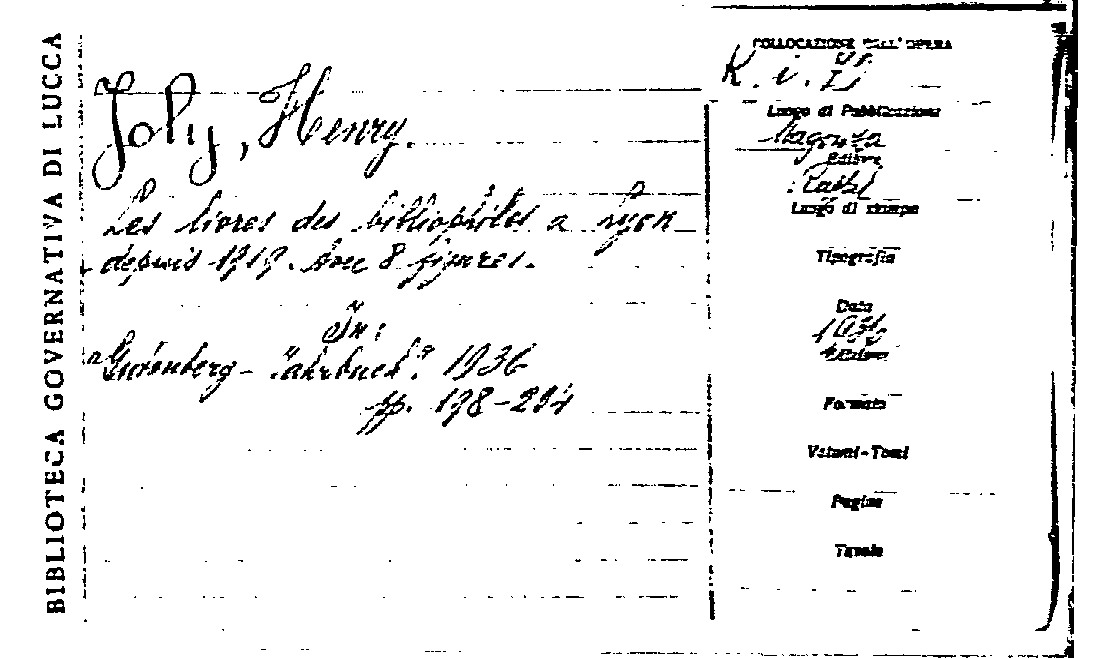 BIBLIOTECA GOVERNATIVA DI LUCCA
Joly, Henry.
Les livres des bibliophiles a Lyon
depuis 1919. Avec 8 figures.
In:
"Gutenberg-Jahrbuch". 1936
pp. 198-204
COLLOCAZIONE DELL'OPERA
K. i.
Luogo di Pubblicazione
Magonza
Editore
Luogo di stampa
Tipografia
Data
1936
Edizione
Formato
Volumi-Tomi
Pagine
Tavole